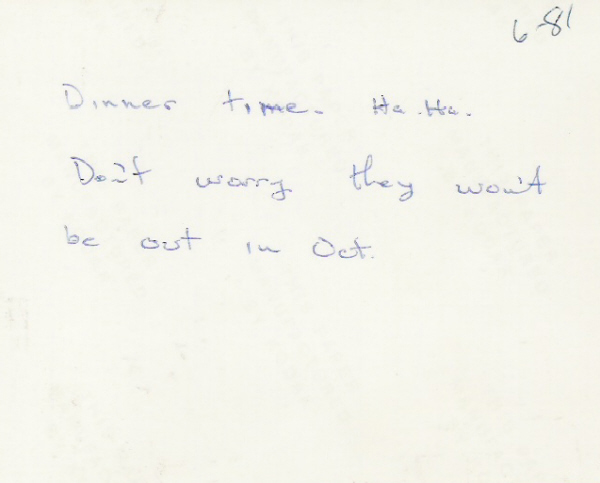 6-81
Dinner time. Ha. Ha.
Don't worry they won't
be out in Oct.